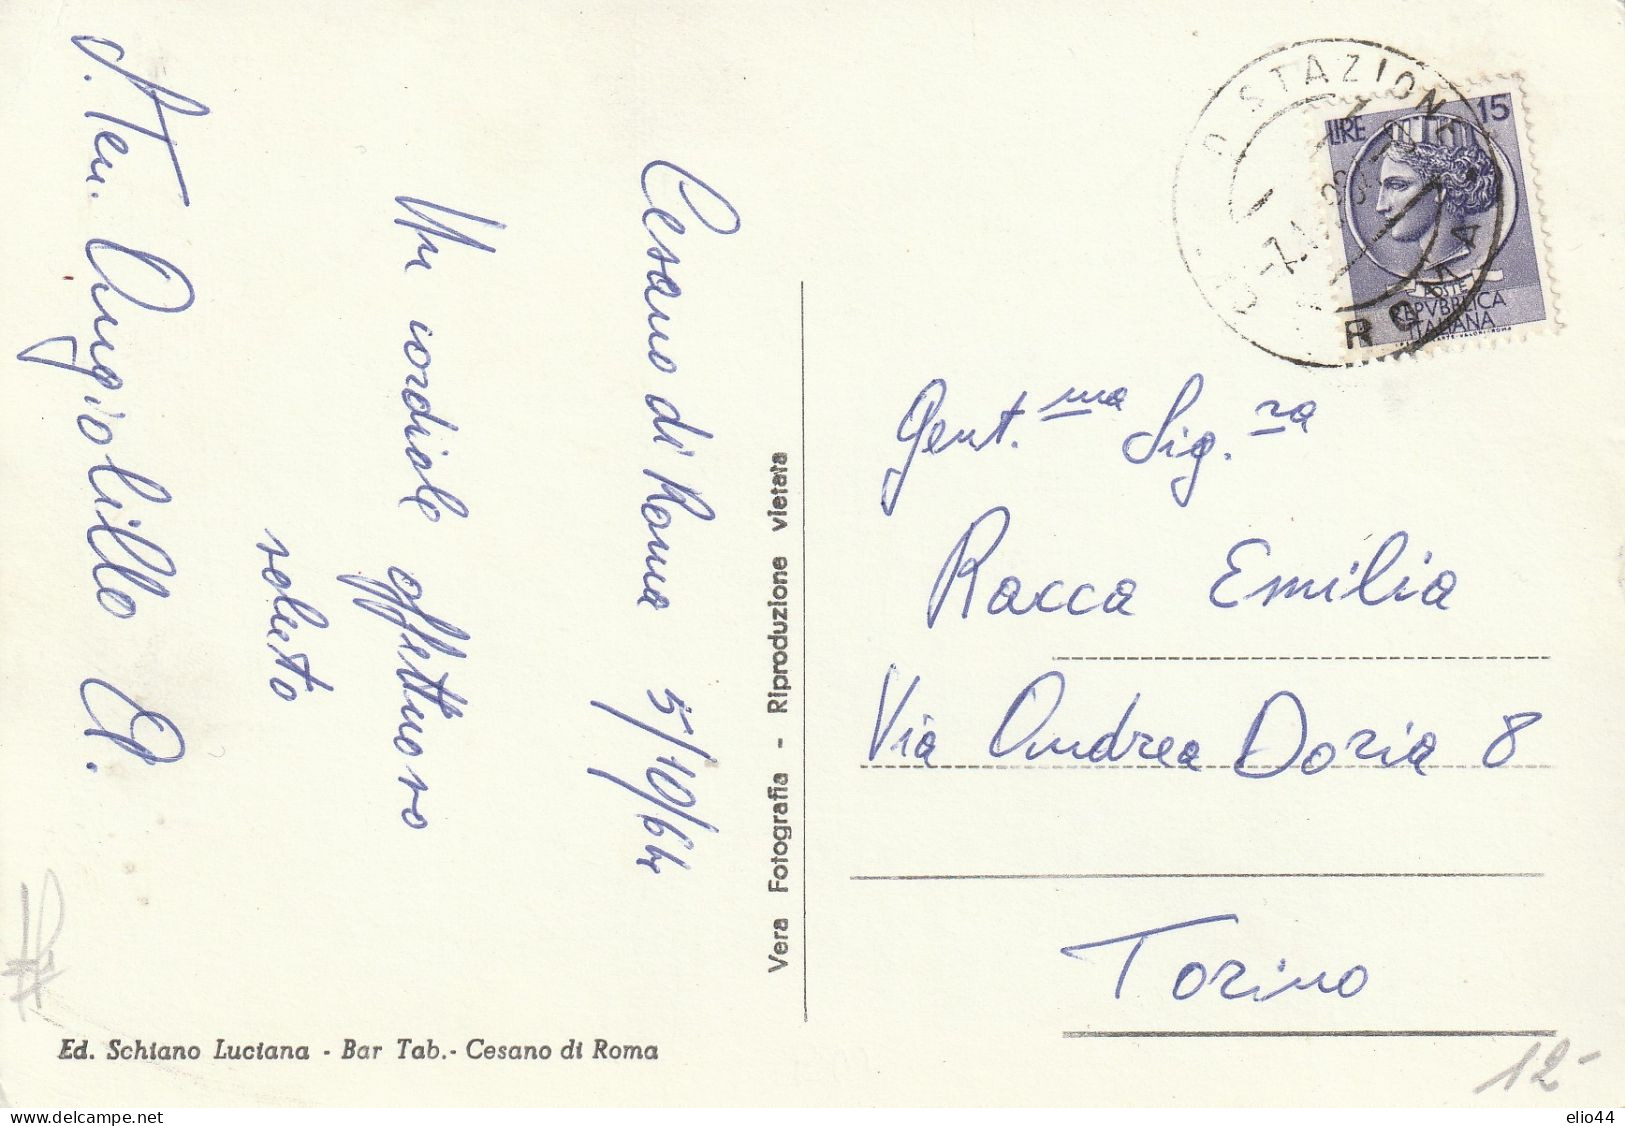 Cesano di Roma 5/10/64
Un cordiale affettuoso
saluto
S.Ten. Angiolillo
Vera Fotografia - Riproduzione vietata
Ed. Schiano Luciana - Bar Tab.- Cesano di Roma
STAZIONE
ROMA
LIRE 15
POSTE
REPVBBLICA
ITALIANA
Gent.ma Sig.ra
Racca Emilia
Via Andrea Doria 8
Torino
12-
elio44